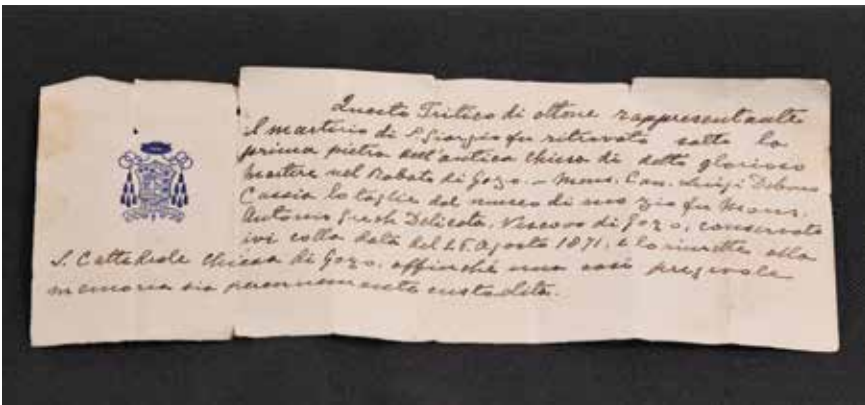 Questo Tritico di ottone rappresentante
il martirio di S. Giorgio fu ritrovato sotto la
prima pietra dell'antica chiesa di detto glorioso
Martire nel Rabato di Gozo. — Mons. Can. Luigi
Cassia lo taglie dal museo di suo zio fu Mons.
Antonio Grech Delicata, Vescovo di Gozo, conservato
ivi colla data del 25 Agosto 1871, e lo rimette alla
S. Cattedrale Chiesa di Gozo, affinchè una così pregevole
memoria sia perennemente custodita.